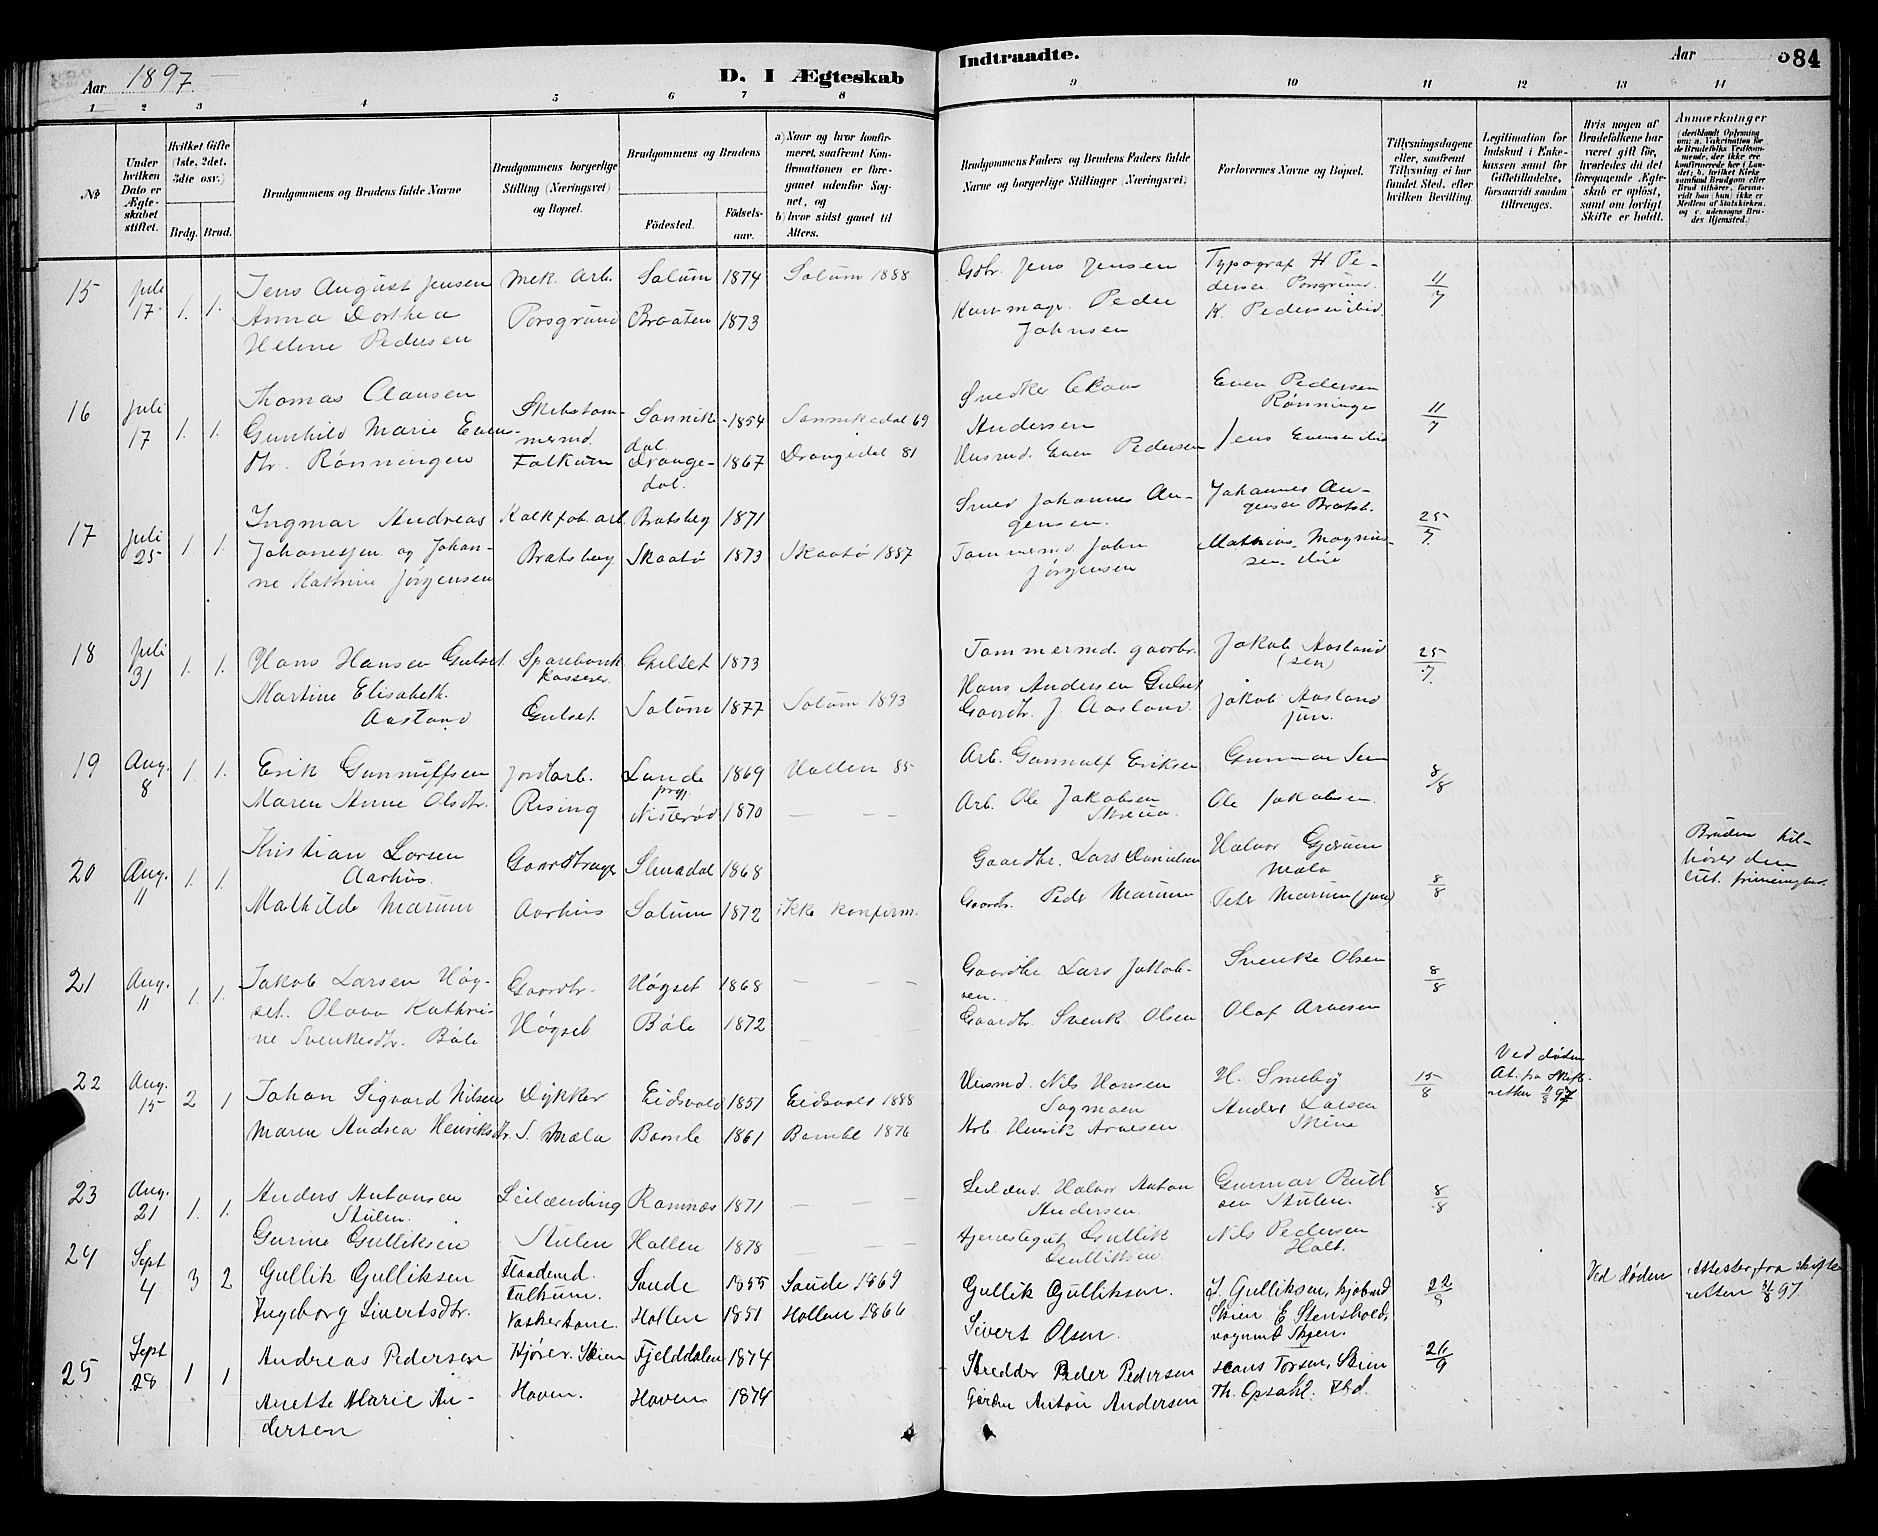 Aar 1897
D. I Ægteskab
Indtraadte.
Aar
84
1 2 3 4 5 6 7 8 9 10 11 12 13 14
№
Under hvilken Dato er Ægteskabet stiftet.
Hvilket Gifte (1ste, 2det, 3die osv.)
Brdg. Brud.
Brudgommens og Brudens fulde Navne
Brudgommens borgerlige Stilling (Næringsvei) og Bopæl.
Brudgommens og Brudens
Födested.
Födselsaar.
a) Naar og hvor konfirmeret, saafremt Konfirmationen er foregaaet udenfor Sognet, og
b) hvor sidst gaaet til Alters.
Brudgommens Faders og Brudens Faders fulde Navne og borgerlige Stillinger (Næringsvei)
Forlovernes Navne og Bopæl.
Tillysningsdagene eller, saafremt Tillysning ei har fundet Sted, efter hvilken Bevilling.
Legitimation for Indskud i Enkekassen samt for Giftetilladelse, forsaavidt saadan tiltrænges.
Hvis nogen af Brudefolkene har været gift för, hvorledes da det foregaaende Ægteskab er oplöst, samt om lovligt Skifte er holdt.
Anmærkninger
15 Juli 17. 1. 1. Jens August Jensen Mek. Arb. Solum 1874 Solum 1888 Gbr. Jens Jensen Typograf H Pedersen Porsgrund. 11/7
Anna Dorthea Helene Pedersen Porsgrund Braaten 1873 Peder Johnsen K. Pedersen ibid
16 Juli 17 1. 1. Thomas Clausen Skibstømmermd. Sannikedal 1854 Sannikedal 69 Snedker Claus Andersen Even Pedersen Rønningen 11/7
Gunhild Marie Evensdtr. Rønningen Falkum Drangedal. 1867 Drangedal 81 Husmd. Even Pedersen Jens Evensen ibid
17 Juli 25 1. 1. Ingmar Andreas Kalkfab. arb. Bratsberg 1871 Smed Johannes Johannes Bratsb. 25/7.
Johanesen og Johanne Kathrine Jørgensen Bratsberg Skaatø 1873 Skaatø 1887 Tømmermd. John Jørgensen Mathias Magnussen
18 Juli 31 1. 1. Hans Hansen Gulset Sparebank Kasserer Gulset 1873 Tømmermd. gaarbr. Hans Andersen Gulset Jakob Aasland (sen) 25/7.
Martine Elisabeth Aasland Gulset. Solum 1877 Solum 1893 Gaardbr. J. Aasland Jakob Aasland jun.
19 Aug. 8 1. 1. Erik Gunnulfsen Jordarb. Lunde prgj. 1869 Hollen 85 Arb. Gunnulf Eriksen Gunnar 8/8
Maren Anne Olsdtr. Rising Nisterød 1870 — — — Arb. Ole Jakobsen Ole Jakobsen.
20 Aug. 11 1. 1. Kristian Larsen Aarhus. Gaardbruger Slemdal 1868 Gaardbr. Lars Danielsen Halvor Gjerum Mæla 8/8 Bruden tilhører den
Mathilde Marum Aarhus Solum 1872 ikke konfirm. Gaardbr. Peder Marum Peter Marum (jun)
21 Aug. 11 1. 1. Jakob Larsen Høgset. Gaardbr. Høgset 1868 — — — Gaardbr. Lars Jakobsen. Svenke Olsen 8/8
Olava Kathrine Svenkesdtr. Bøle Høgset Bøle 1872 — Gaardbr. Svenke Olsen Olaf Arnesen
22 Aug. 15 2 1 Johan Sigvard Nilsen Dykker Eidsvold 1851 Eidsvold 1888 Husmd. Nils Hansen Sagmoen H. Smeby 15/8 Ved døden At. fra Skifteretten 11/8 97
Maren Andrea Henriksdtr. S. Mæla Bamle 1861 Bamble 1876 Arb. Henrik Arnesen Anders Larsen
23 Aug. 21 1. 1. Anders Antonsen Stulen. Leilænding Ramnæs 1871 — — — Leilænd. Halvor Anton Andersen. Gunnar Stulen. 8/8
Gurine Gulliksen Stulen Hollen 1878 — — — Tjenestegut Gullik Gulliksen. Nils Pedersen Holt.
24 Sept 4 3 2 Gullik Gulliksen Falkum. Saude 1855 Saude 1869 Gullik Gulliksen. J. Gulliksen, kjøbmd Skien 22/8 Ved døden attester fra skifteretten 31/8 97.
Ingeborg Sivertsdtr. Vaskerkone. Hollen 1851 Hollen 1866 Sivert Olsen. E Stensholdt, vognmd Skien.
25 Sept 28 1 1 Andreas Pedersen Kjører. Skien Fjelddalen 1874 Peder Pedersen Hans Torsen, Skien 26/9
Anette Marie Andersen Haven. Haven 1874 Anton Andersen Th. Opsahl. ibd.